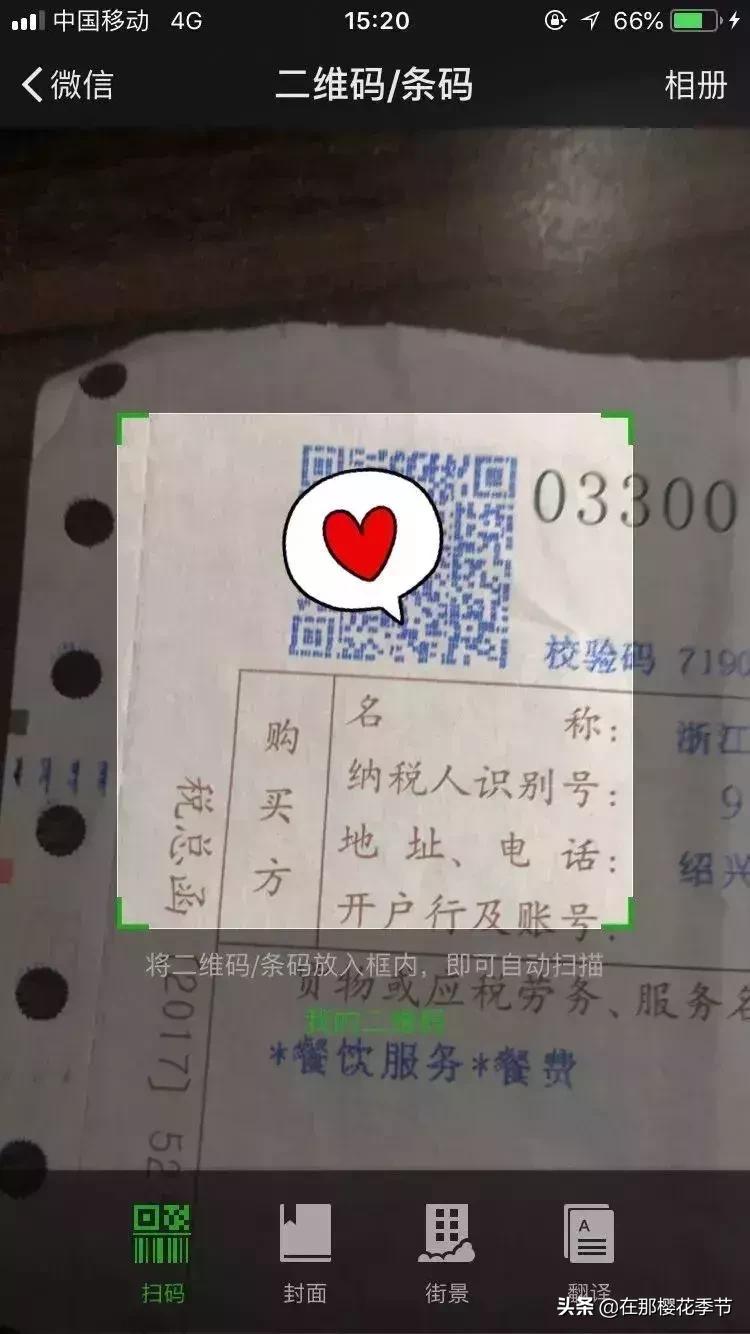 中国移动 4G 15:20 66%
微信 二维码/条码 相册
03300
校验码 7190
购买方
名 称: 浙江
纳税人识别号: 9
地址、电话: 绍兴
开户行及账号:
税总函[2017]52
将二维码/条码放入框内，即可自动扫描
货物或应税劳务、服务名
我的二维码
*餐饮服务*餐费
扫码 封面 街景 翻译
头条 @在那樱花季节